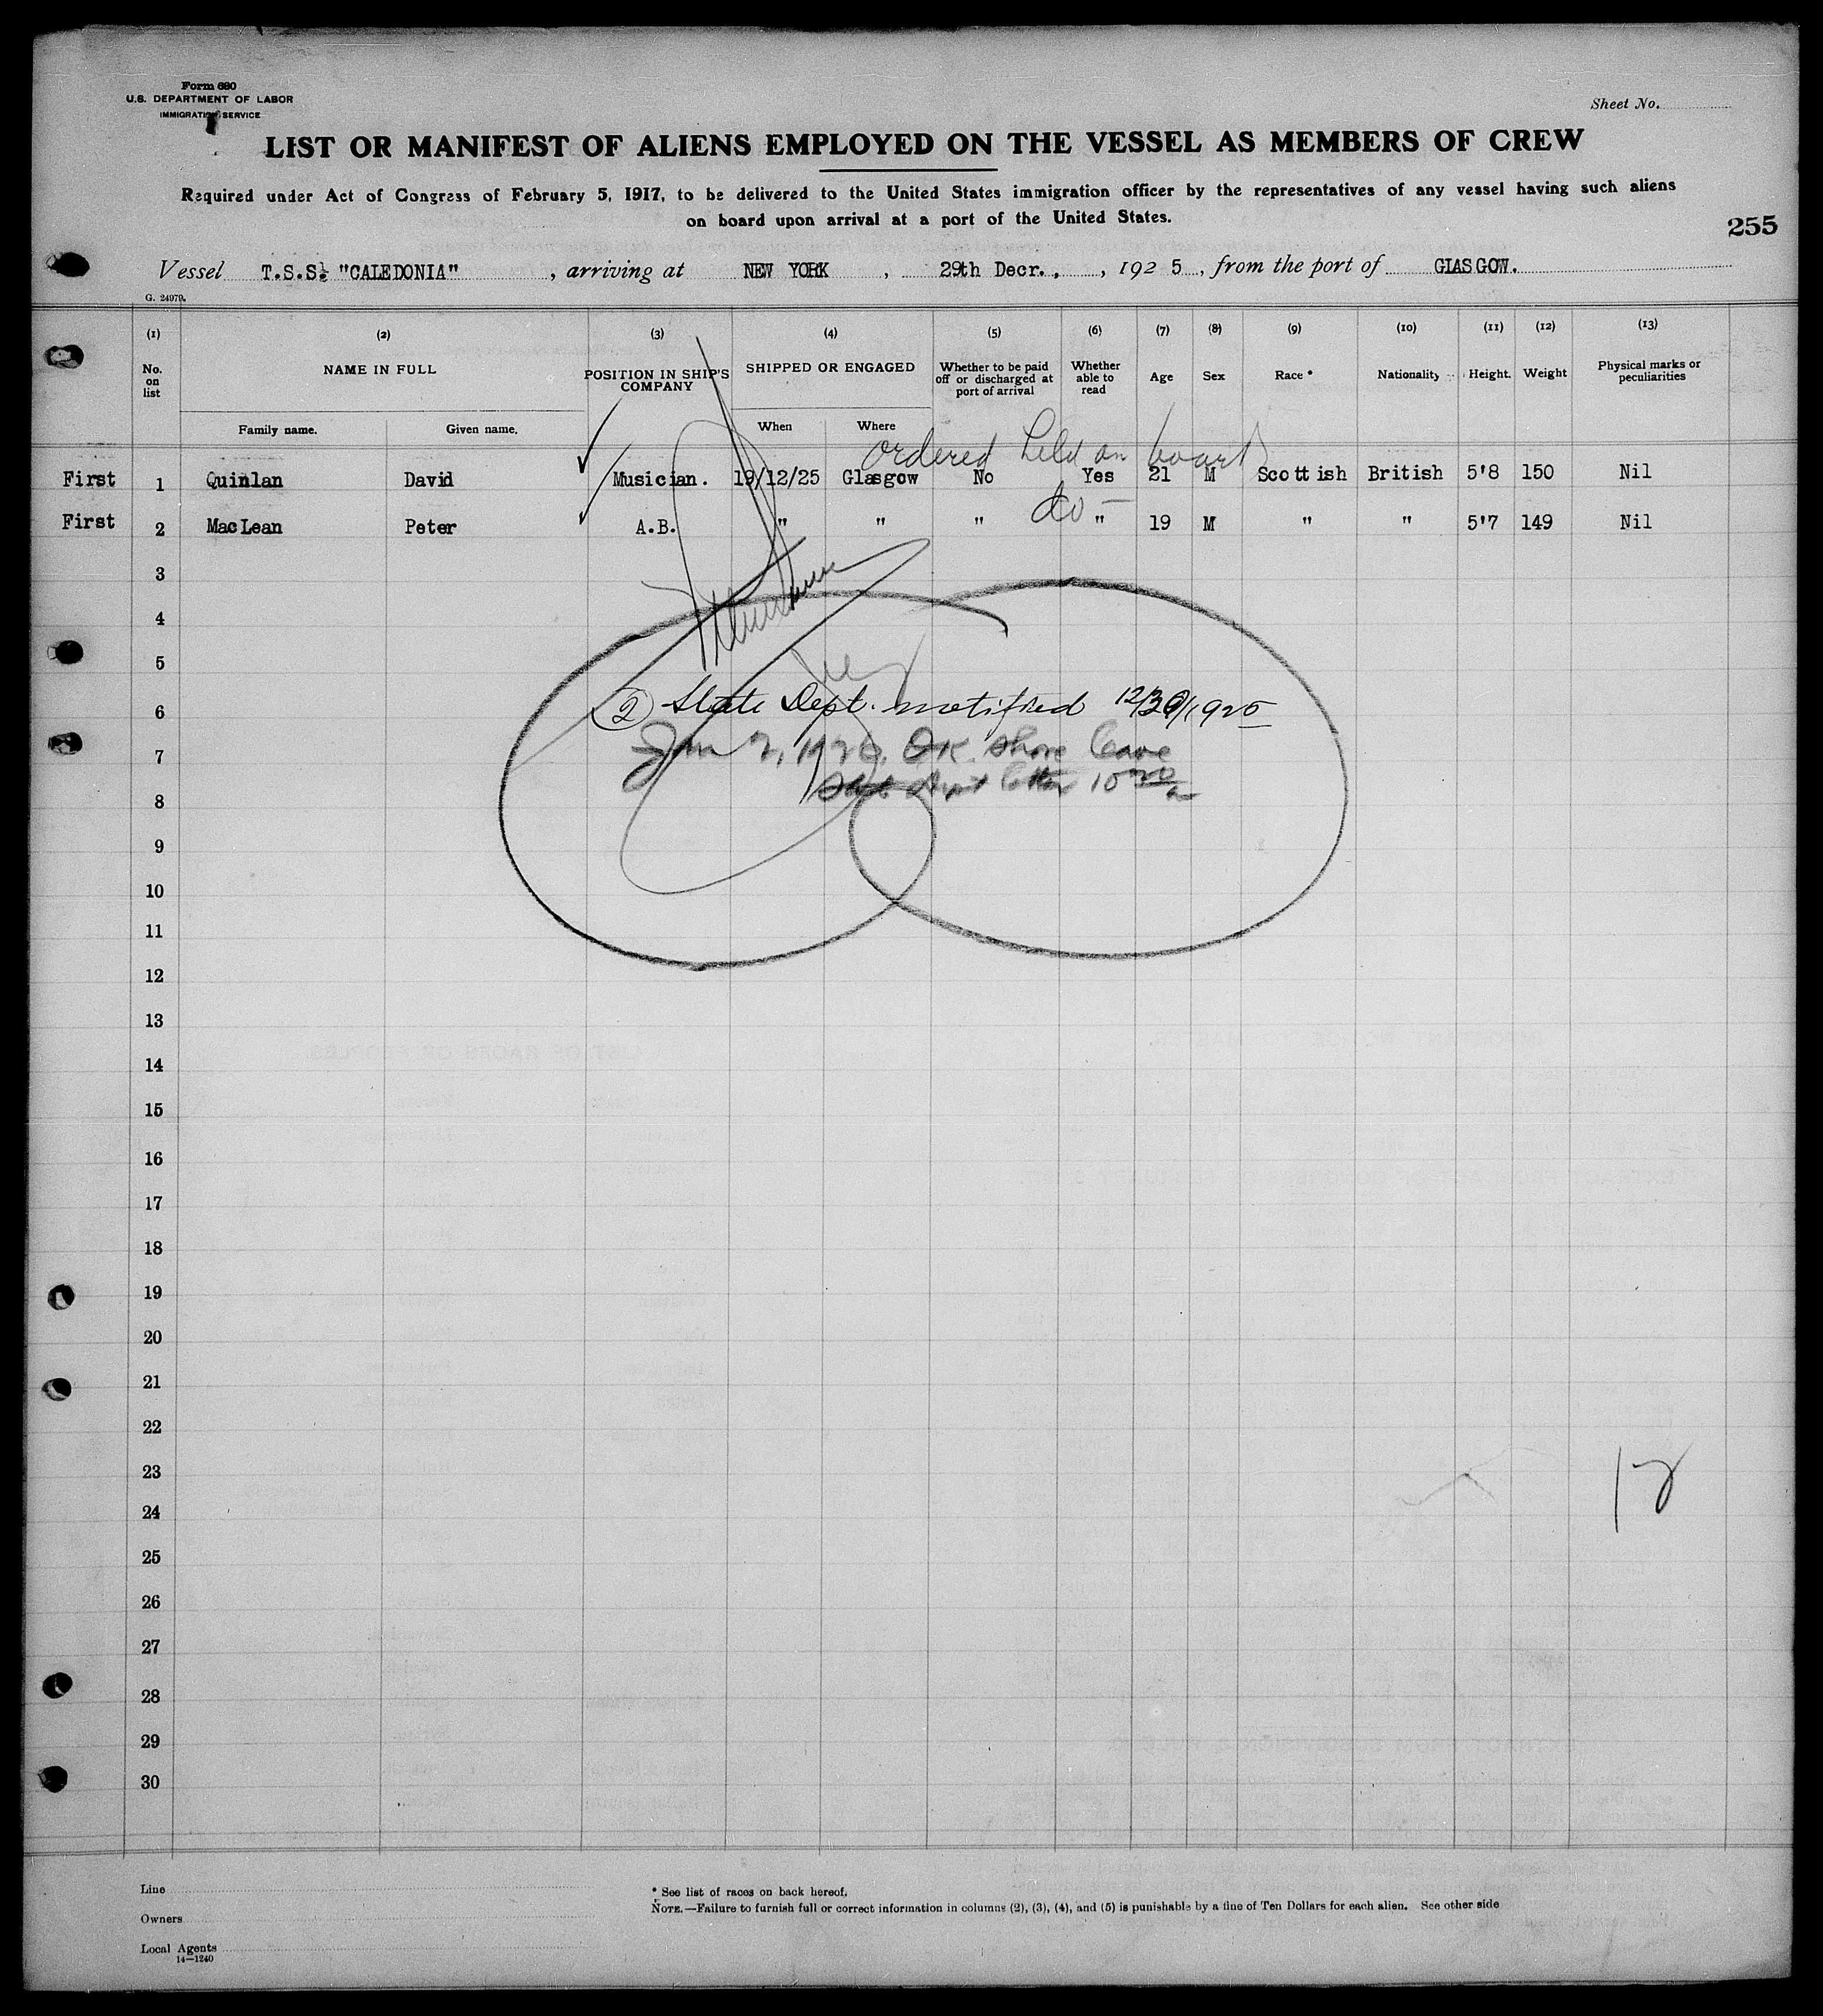 Form 680
U.S. DEPARTMENT OF LABOR
IMMIGRATION SERVICE
Sheet No.
LIST OR MANIFEST OF ALIENS EMPLOYED ON THE VESSEL AS MEMBERS OF CREW
Required under Act of Congress of February 5, 1917, to be delivered to the United States immigration officer by the representatives of any vessel having such aliens
on board upon arrival at a port of the United States.
255
Vessel T.S.S. "CALEDONIA", arriving at NEW YORK, 29th Decr., 1925, from the port of GLASGOW.
G. 24979.
(1) (2) (3) (4) (5) (6) (7) (8) (9) (10) (11) (12) (13)
No. on list NAME IN FULL POSITION IN SHIP'S COMPANY SHIPPED OR ENGAGED Whether to be paid off or discharged at port of arrival Whether able to read Age Sex Race * Nationality Height. Weight Physical marks or peculiarities
Family name. Given name. When Where
ordered held on board
First 1 Quinlan David Musician. 19/12/25 Glasgow No Yes 21 M Scottish British 5'8 150 Nil
do —
First 2 MacLean Peter A.B. " " " " 19 M " " 5'7 149 Nil
3
4
5
6
② State Dept. notified 12/30/1925
7
Jan 2, 1926, OK. Shore leave
State Dept letter 10
8
9
10
11
12
13
14
15
16
17
18
19
20
21
22
23
24
25
26
27
28
29
30
Line
Owners
Local Agents
14—1240
* See list of races on back hereof.
NOTE.—Failure to furnish full or correct information in columns (2), (3), (4), and (5) is punishable by a fine of Ten Dollars for each alien. See other side